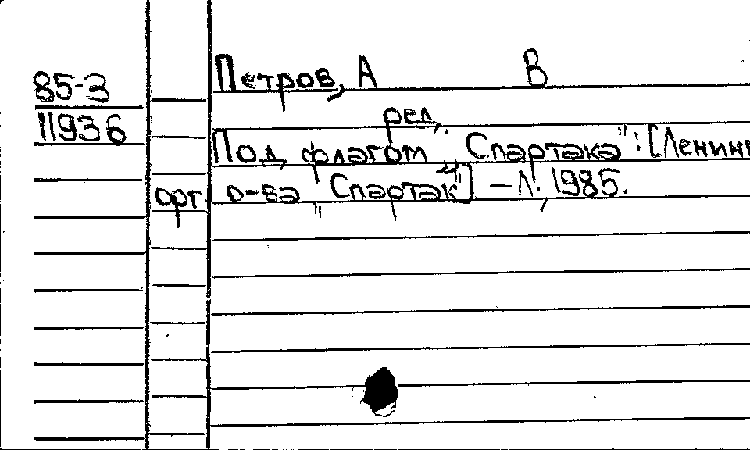 85-3
Петров, А В
11936
ред.
Под флагом "Спартака": [Ленингр
орг. о-ва "Спартак"] - Л. 1985.